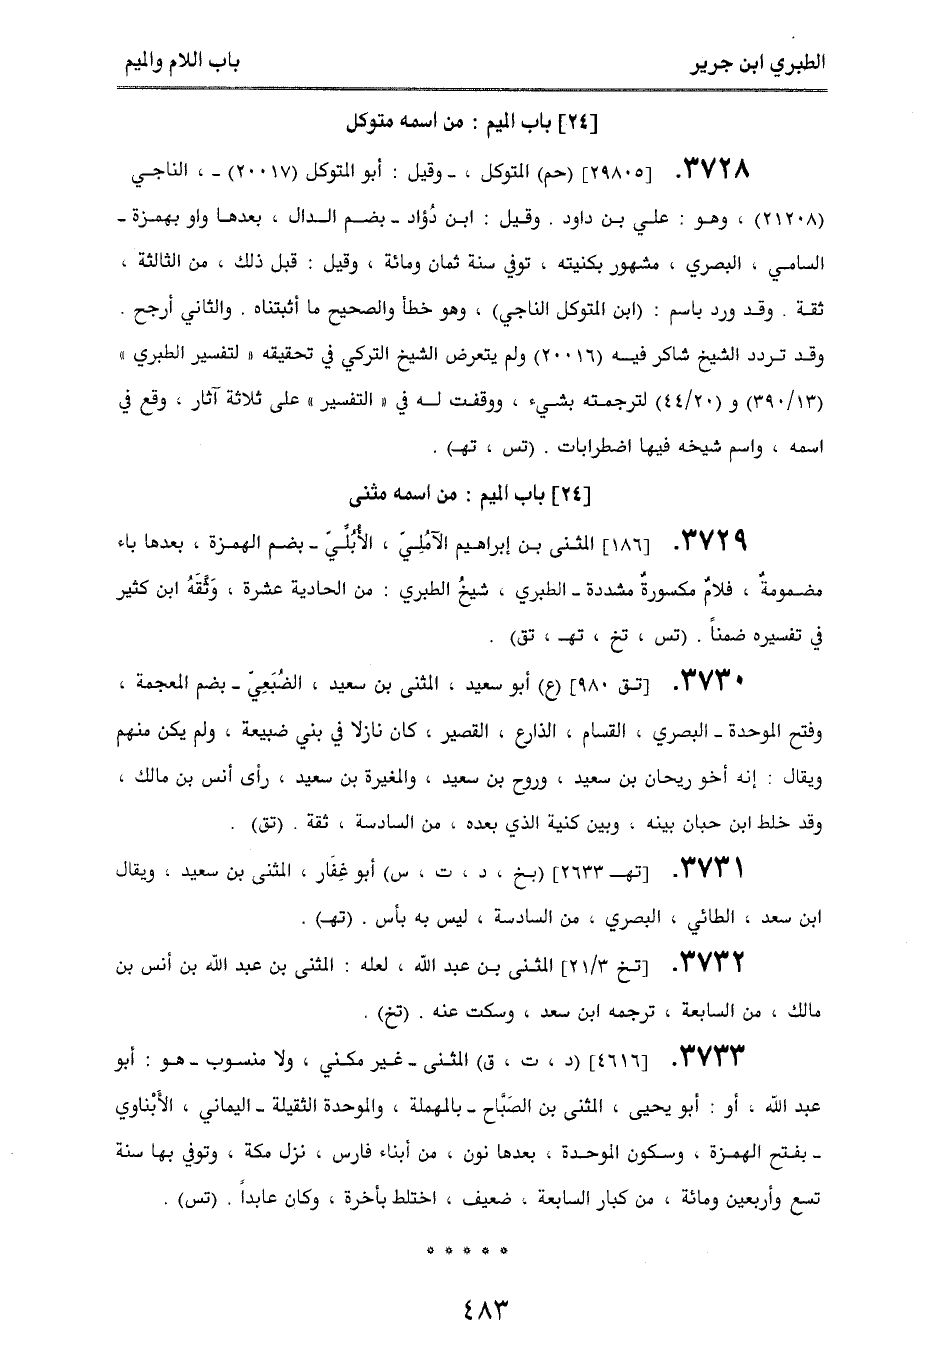 الطبري ابن جرير
باب اللام والميم
[٢٤] باب الميم : من اسمه متوكل
٣٧٢٨. [٢٩٨٠٥] (حم) المتوكل ، ـ وقيل : أبو المتوكل (٢٠٠١٧) ـ ، الناجي
(٢١٢٠٨) ، وهو : علي بن داود . وقيل : ابن دُؤاد ـ بضم الدال ، بعدها واو بهمزة ـ
السامي ، البصري ، مشهور بكنيته ، توفي سنة ثمان ومائة ، وقيل : قبل ذلك ، من الثالثة ،
ثقة . وقد ورد باسم : (ابن المتوكل الناجي) ، وهو خطأ والصحيح ما أثبتناه . والثاني أرجح .
وقد تردد الشيخ شاكر فيه (٢٠٠١٦) ولم يتعرض الشيخ التركي في تحقيقه « لتفسير الطبري »
(٣٩٠/١٣) و (٤٤/٢٠) لترجمته بشيء ، ووقفت له في « التفسير » على ثلاثة آثار ، وقع في
اسمه ، واسم شيخه فيها اضطرابات . (تس ، تهـ) .
[٢٤] باب الميم : من اسمه مثنى
٣٧٢٩. [١٨٦] المثنى بن إبراهيم الآمُلِيّ ، الأُبُلِّيّ ـ بضم الهمزة ، بعدها باء
مضمومةٌ ، فلامٌ مكسورةٌ مشددة ـ الطبري ، شيخُ الطبري : من الحادية عشرة ، وَثَّقَهُ ابن كثير
في تفسيره ضمناً . (تس ، تخ ، تهـ ، تق) .
٣٧٣٠. [تق ٩٨٠] (ع) أبو سعيد ، المثنى بن سعيد ، الضُبَعِيّ ـ بضم المعجمة ،
وفتح الموحدة ـ البصري ، القسام ، الذارع ، القصير ، كان نازلا في بني ضبيعة ، ولم يكن منهم
ويقال : إنه أخو ريحان بن سعيد ، وروح بن سعيد ، والمغيرة بن سعيد ، رأى أنس بن مالك ،
وقد خلط ابن حبان بينه ، وبين كنية الذي بعده ، من السادسة ، ثقة . (تق) .
٣٧٣١. [تهـ ٢٦٣٣] (بخ ، د ، ت ، س) أبو غِفَار ، المثنى بن سعيد ، ويقال
ابن سعد ، الطائي ، البصري ، من السادسة ، ليس به بأس . (تهـ) .
٣٧٣٢. [تخ ٢١/٣] المثنى بن عبد الله ، لعله : المثنى بن عبد الله بن أنس بن
مالك ، من السابعة ، ترجمه ابن سعد ، وسكت عنه . (تخ) .
٣٧٣٣. [٤٦١٦] (د ، ت ، ق) المثنى ـ غير مكني ، ولا منسوب ـ هو : أبو
عبد الله ، أو : أبو يحيى ، المثنى بن الصَبَّاح ـ بالمهملة ، والموحدة الثقيلة ـ اليماني ، الأَبْناوي
ـ بفتح الهمزة ، وسكون الموحدة ، بعدها نون ، من أبناء فارس ، نزل مكة ، وتوفي بها سنة
تسع وأربعين ومائة ، من كبار السابعة ، ضعيف ، اختلط بأخرة ، وكان عابداً . (تس) .
* * * * *
٤٨٣